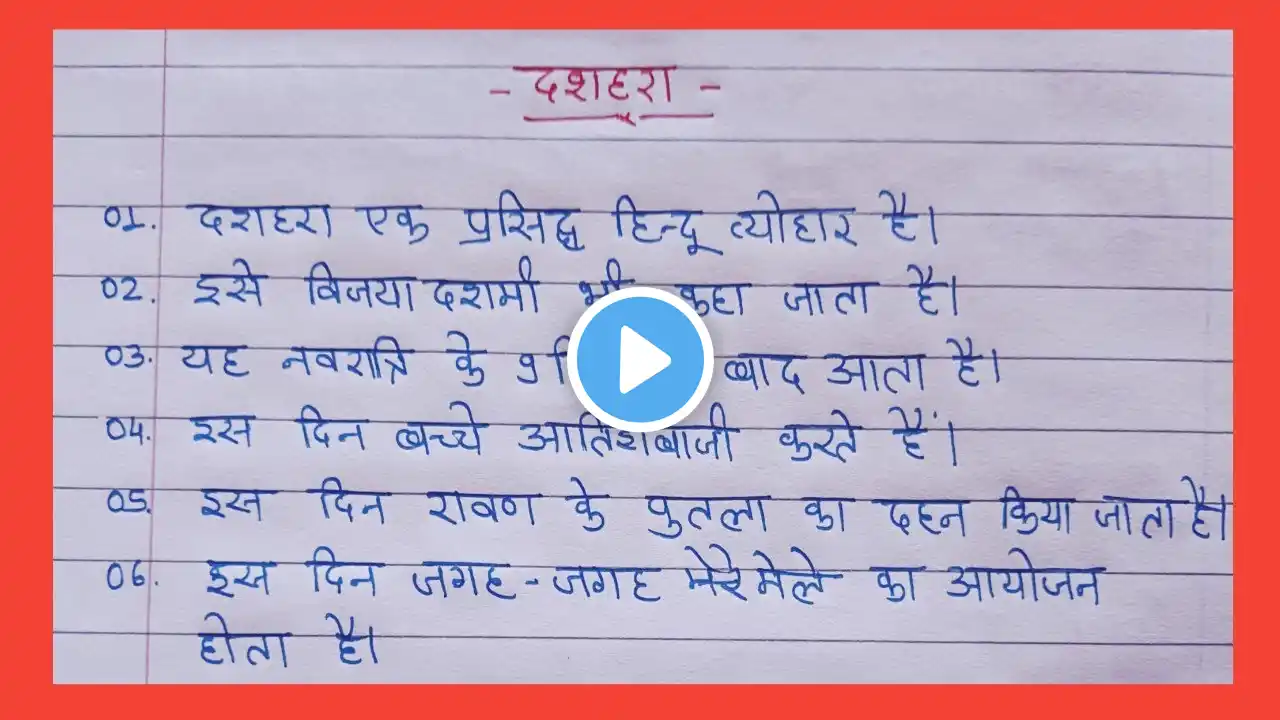 - दशहरा -
01. दशहरा एक प्रसिद्ध हिन्दू त्योहार है।
02. इसे विजयादशमी भी कहा जाता है।
03. यह नवरात्रि के बाद आता है।
04. इस दिन बच्चे आतिशबाजी करते हैं।
05. इस दिन रावण के पुतला का दहन किया जाता है।
06. इस दिन जगह-जगह मेले का आयोजन
होता है।